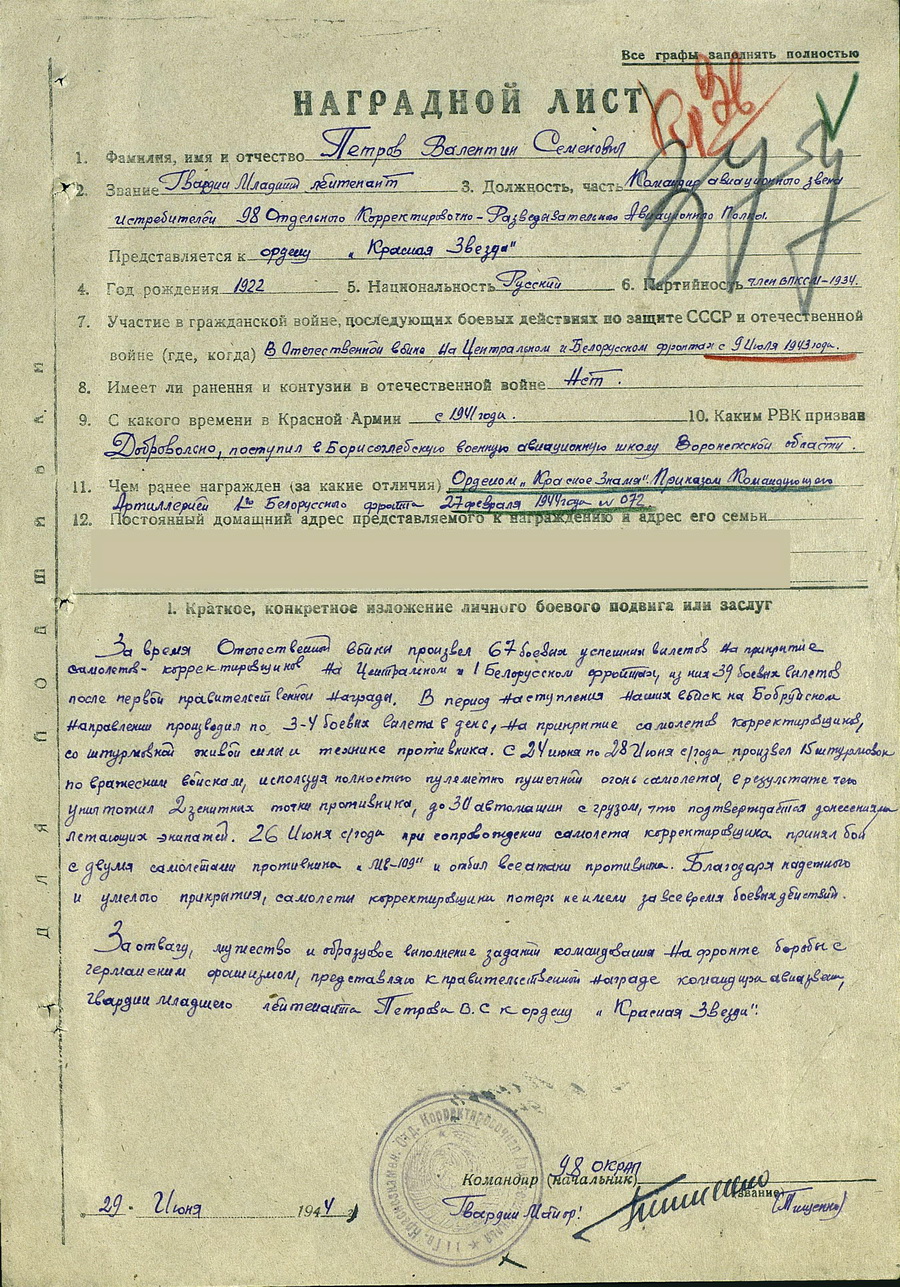 Все графы заполнять полностью
НАГРАДНОЙ ЛИСТ
1. Фамилия, имя и отчество Петров Валентин Семенович
2. Звание Гвардии Младший лейтенант 3. Должность, часть Командир авиационного звена
истребителей 98 Отдельного Корректировочно-Разведывательного Авиационного Полка.
Представляется к ордену „Красная Звезда"
4. Год рождения 1922 5. Национальность Русский 6. Партийность член ВЛКСМ-1934.
7. Участие в гражданской войне, последующих боевых действиях по защите СССР и отечественной
войне (где, когда) В Отечественной войне на Центральном и Белорусском фронтах с 9 Июля 1943 года.
8. Имеет ли ранения и контузии в отечественной войне Нет.
9. С какого времени в Красной Армии с 1941 года. 10. Каким РВК призван
Добровольно, поступил в Борисоглебскую военную авиационную школу Воронежской области.
11. Чем ранее награжден (за какие отличия) Орденом „Красное Знамя". Приказом Командующего
Артиллерией 1го Белорусского фронта 27 февраля 1944 года № 072
12. Постоянный домашний адрес представляемого к награждению и адрес его семьи
1. Краткое, конкретное изложение личного боевого подвига или заслуг
За время Отечественной войны произвел 67 боевых успешных вылетов на прикрытие
самолетов-корректировщиков на Центральном и 1 Белорусском фронтах, из них 39 боевых вылетов
после первой правительственной награды. В период наступления наших войск на Бобруйском
направлении производил по 3-4 боевых вылета в день, на прикрытие самолетов корректировщиков,
со штурмовкой живой силы и технике противника. С 24 июня по 28 Июня с/года произвел 15 штурмовок
по вражеским войскам, используя полностью пулеметно пушечный огонь самолета, в результате чего
уничтожил 2 зенитных точки противника, до 30 автомашин с грузом, что подтверждается донесениями
летающих экипажей. 26 Июня с/года при сопровождении самолета корректировщика принял бой
с двумя самолетами противника „МЕ-109" и отбил все атаки противника. Благодаря надежного
и умелого прикрытия, самолеты корректировщики потерь не имели за все время боевых действий.
За отвагу, мужество и образцовое выполнение заданий командования на фронте борьбы с
германским фашизмом, представляю к правительственной награде командира авиазвена,
гвардии младшего лейтенанта Петрова В.С к ордену „Красная Звезда".
98 ОКРАП
Командир (начальник)
(звание)
29. Июня 1944
Гвардии Майор! (Тищенко)
ДЛЯ ПОДШИВКИ